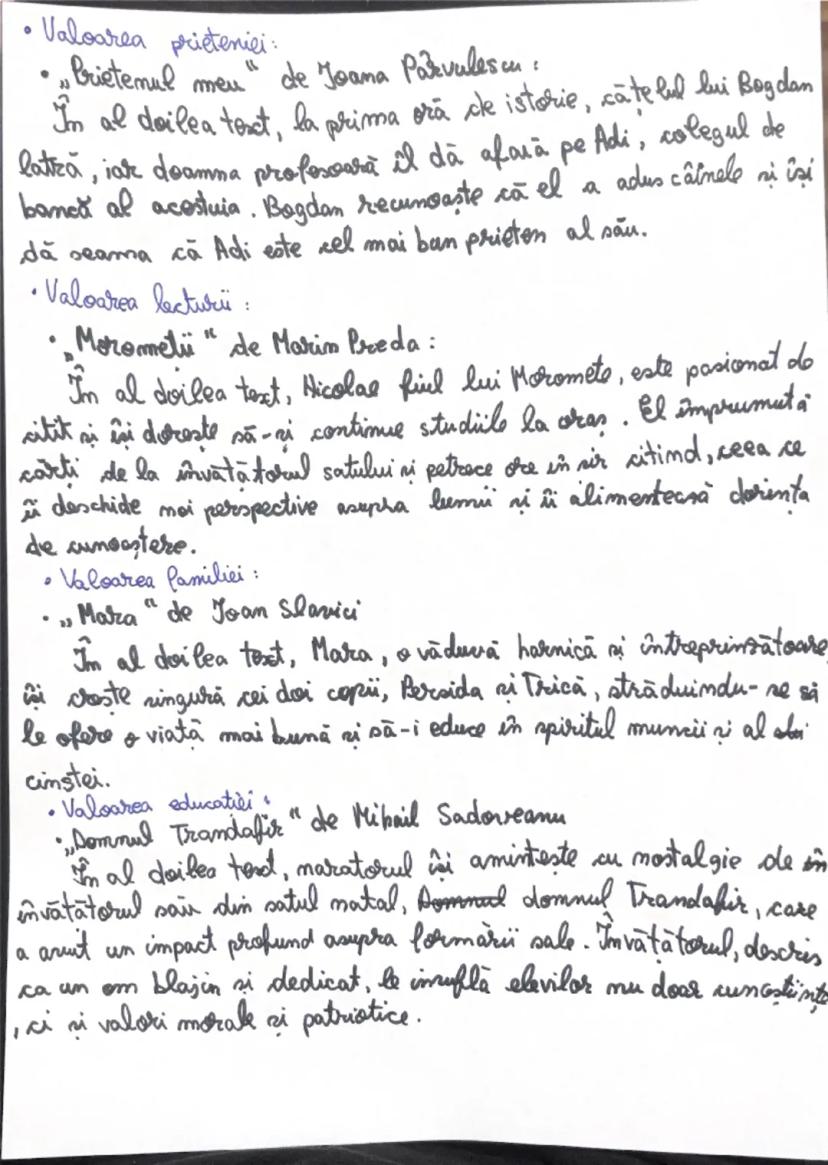 • Valoarea prieteniei:
• „Prietenul meu" de Ioana Pârvulescu:
În al doilea text, la prima oră de istorie, cățelul lui Bogdan
latră, iar doamna profesoară îl dă afară pe Adi, colegul de
bancă al acestuia. Bogdan recunoaște că el a adus câinele și își
dă seama că Adi este cel mai bun prieten al său.
• Valoarea lecturii:
• „Moromeții" de Marin Preda:
În al doilea text, Nicolae fiul lui Moromete, este pasionat de
citit și își dorește să-și continue studiile la oraș. El împrumută
cărți de la învățătorul satului și petrece ore în șir citind, ceea ce
îi deschide noi perspective asupra lumii și îi alimentează dorința
de cunoaștere.
• Valoarea familiei:
• „Mara" de Ioan Slavici
În al doilea text, Mara, o văduvă harnică și întreprinzătoare,
își crește singură cei doi copii, Persida și Trică, străduindu-se să
le ofere o viață mai bună și să-i educe în spiritul muncii și al
cinstei.
• Valoarea educației:
• „Domnul Trandafir" de Mihail Sadoveanu
În al doilea text, naratorul își amintește cu nostalgie de
învățătorul său din satul natal, Domnul domnul Trandafir, care
a avut un impact profund asupra formării sale. Învățătorul, descris
ca un om blajin și dedicat, le insuflă elevilor nu doar cunoștințe
, ci și valori morale și patriotice.